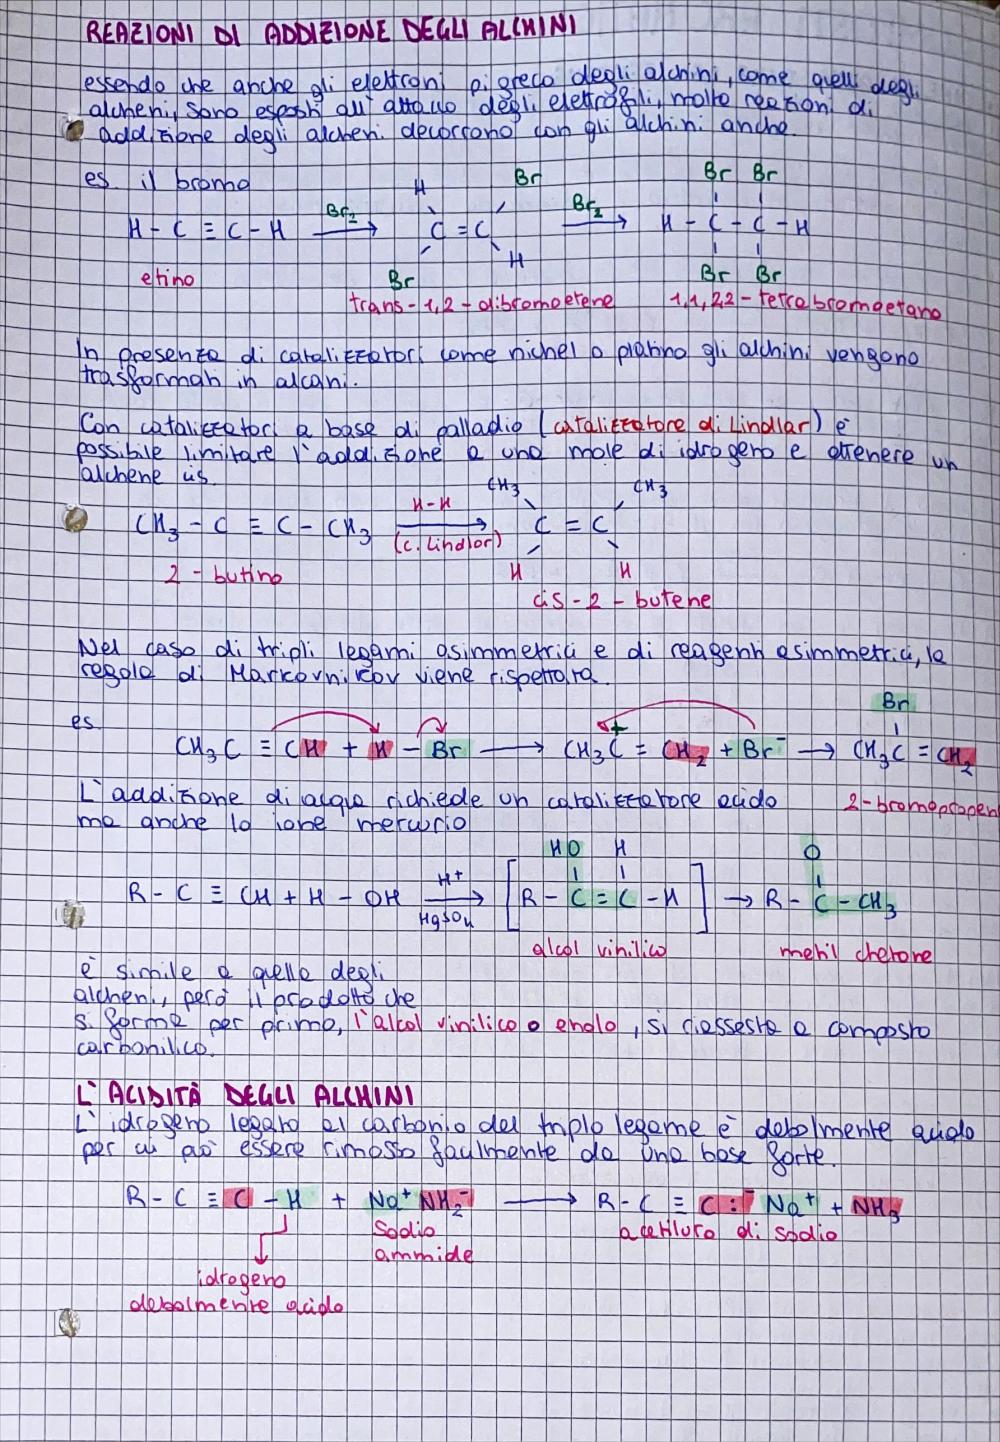 REAZIONI DI ADDIZIONE DEGLI ALCHINI
essendo che anche gli elettroni pi greco degli alchini, come quelli degli
alcheni, sono esposti all'attacco degli elettrofili, molte reazioni di
addizione degli alcheni decorrono con gli alchini anche.
es. il bromo
H Br Br Br
H - C ≡ C - H Br₂ → C = C Br₂ → H - C - C - H
Br H Br Br
etino trans - 1,2 - dibromoetene 1,1,2,2 - tetrabromoetano
In presenza di catalizzatori come nichel o platino gli alchini vengono
trasformati in alcani.
Con catalizzatori a base di palladio (catalizzatore di Lindlar) è
possibile limitare l'addizione a una mole di idrogeno e ottenere un
alchene cis.
CH₃ CH₃
CH₃ - C ≡ C - CH₃ H-H → (c. Lindlar) C = C
H H
2 - butino cis - 2 - butene
Nel caso di tripli legami asimmetrici e di reagenti asimmetrici, la
regola di Markovnikov viene rispettata.
es Br
CH₃C ≡ CH + H - Br → CH₃C⁺ = CH₂ + Br⁻ → CH₃C = CH₂
2-bromopropen
L'addizione di acqua richiede un catalizzatore acido
ma anche lo ione mercurio
HO H O
R - C ≡ CH + H - OH H⁺ → HgSO₄ [R - C = C - H] → R - C - CH₃
alcol vinilico metil chetone
è simile a quella degli
alcheni, però il prodotto che
si forma per primo, l'alcol vinilico o enolo, si riassesta a composto
carbonilico.
L'ACIDITÀ DEGLI ALCHINI
L'idrogeno legato al carbonio del triplo legame è debolmente acido
per cui può essere rimosso facilmente da una base forte.
R - C ≡ C - H + Na⁺NH₂⁻ → R - C ≡ C:⁻ Na⁺ + NH₃
sodio
ammide
acetiluro di sodio
idrogeno
debolmente acido